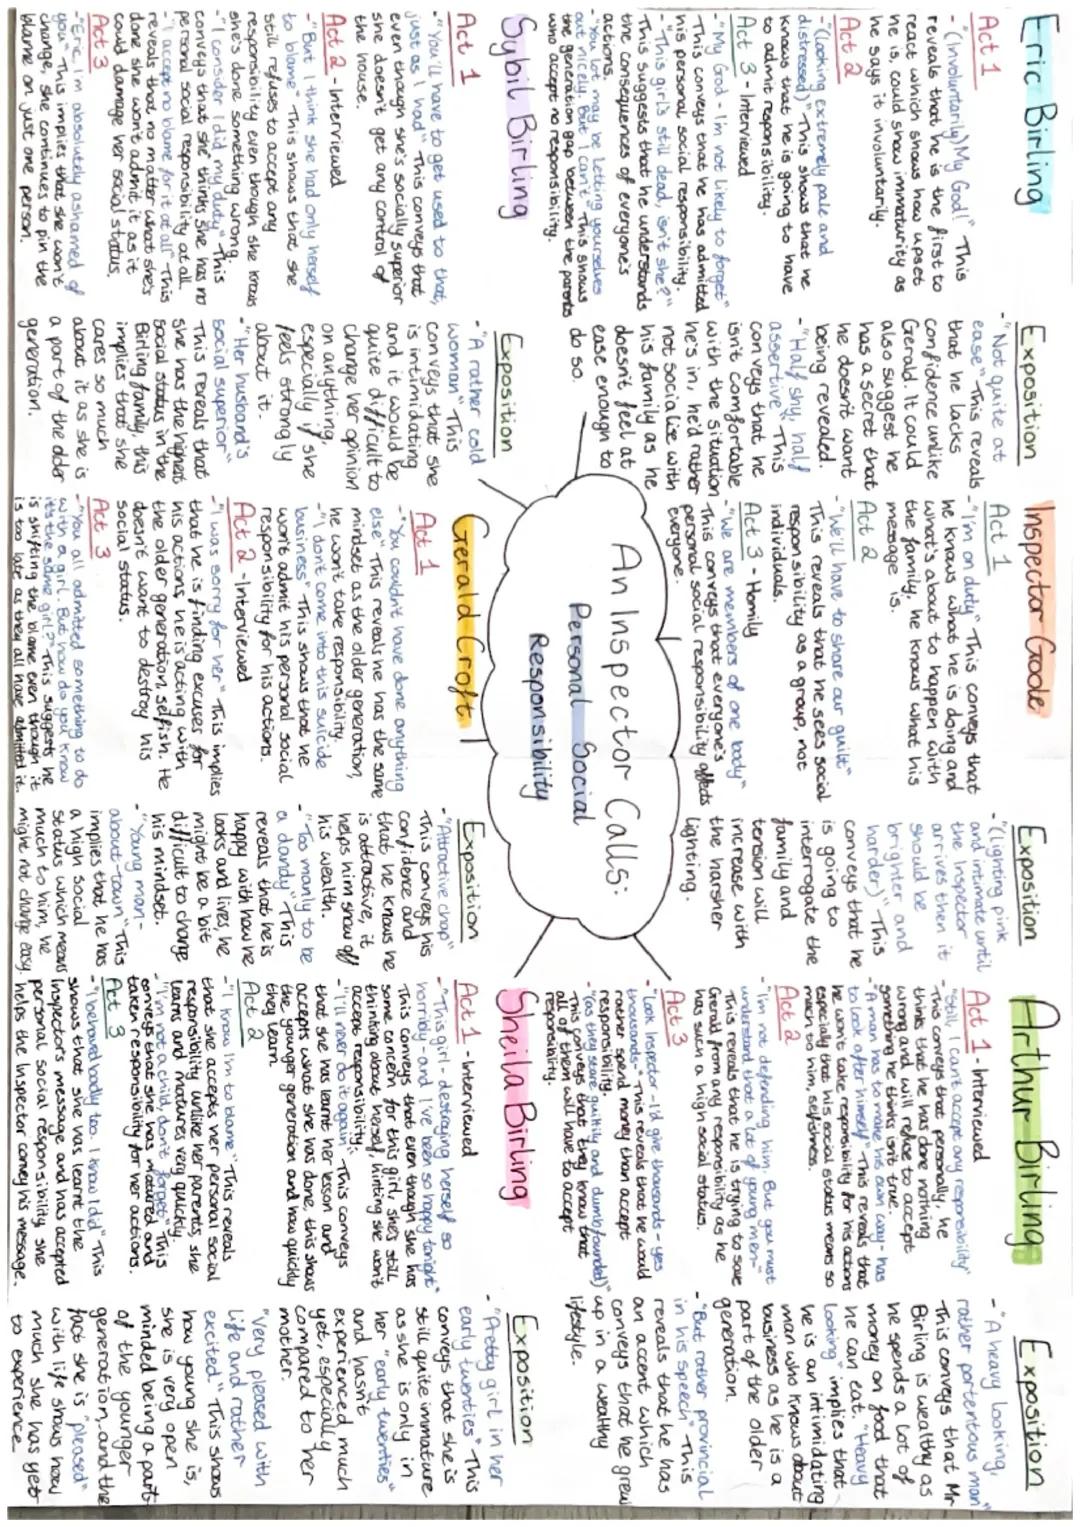 An Inspector Calls:
Personal Social
Responsibility
Eric Birling
Act 1
-"(Involuntarily) My God!" This
reveals that he is the first to
react which shows how upset
he is, could show immaturity as
he says it involuntarily.
Act 2
-"(Looking extremely pale and
distressed)" This shows that he
knows that he is going to have
to admit responibility.
Act 3 - Interviewed
-"My God - I'm not likely to forget"
This conveys that he has admitted
his personal social responsibility.
-"This girl's still dead, isn't she?"
This suggests that he understands
the consequences of everyone's
actions.
-"You lot may be letting yourselves
out nicely. But I can't" This shows
the generation gap between the parents
who accept no responsibility.
Exposition
-"Not quite at
ease" This reveals
that he lacks
confidence unlike
Gerald. It could
also suggest he
has a secret that
he doesn't want
being revealed.
-"Half shy, half
assertive" This
conveys that he
isn't comfortable
with the situation
he's in, he'd rather
not socialise with
his family as he
doesn't feel at
ease enough to
do so.
Inspector Goole
Act 1
-"I'm on duty" This conveys that
he knows what he is doing and
what's about to happen with
the family; he knows what his
message is.
Act 2
-"We'll have to share our guilt"
This reveals that he sees social
responsibility as a group, not
individuals.
Act 3 - Homily
-"We are members of one body"
This conveys that everyone's
personal social responsibility affects
everyone.
Exposition
-"(lighting pink
and intimate until
the Inspector
arrives then it
should be
brighter and
harder)" This
conveys that he
is going to
interrogate the
family and
tension will
increase with
the harsher
lighting.
Arthur Birling
Act 1 - Interviewed
-"Still, I can't accept any responsibility"
This conveys that personally, he
thinks that he has done nothing
wrong and will refuse to accept
something he thinks isn't true.
-"A man has to make his own way - has
to look after himself" This reveals that
he won't take responsibility for his actions
especially that his social status means so
much to him, selfishness.
Act 2
-"I'm not defending him. But you must
understand that a lot of young men-"
This reveals that he is trying to save
Gerald from any responsibility as he
has such a high social status.
Act 3
-"Look Inspector - I'd give thousands - yes
thousands-" This reveals that he would
rather spend money than accept
responsibility.
-"(as they stare guiltily and dumbfounded)"
This conveys that they know that
all of them will have to accept
responsibility.
Exposition
-"A heavy looking,
rather portentous man"
This conveys that Mr
Birling is wealthy as
he spends a lot of
money on food that
he can eat. "Heavy
looking" implies that
he is an intimidating
man who knows about
business as he is a
part of the older
generation.
-"But rather provincial
in his speech" This
reveals that he has
an accent which
conveys that he grew
up in a wealthy
lifestyle.
Sybil Birling
Act 1
-"You'll have to get used to that,
just as I had" This conveys that
even though she's socially superior
she doesn't get any control of
the house.
Act 2 - Interviewed
-"But I think she had only herself
to blame" This shows that she
still refuses to accept any
responsibility even though she knows
she's done something wrong.
-"I consider I did my duty" This
conveys that she thinks she has no
personal social responsibility at all.
-"I accept no blame for it at all" This
reveals that no matter what she's
done she won't admit it as it
could damage her social status.
Act 3
-"Eric, I'm absolutely ashamed of
you" This implies that she won't
change, she continues to pin the
blame on just one person.
Exposition
-"A rather cold
woman" This
conveys that she
is intimidating
and it would be
quite difficult to
change her opinion
on anything,
especially if she
feels strongly
about it.
-"Her husband's
social superior"
This reveals that
she has the highest
social status in the
Birling family, this
implies that she
cares so much
about it as she is
a part of the older
generation.
Gerald Croft
Act 1
-"You couldn't have done anything
else" This reveals he has the same
mindset as the older generation,
he won't take responsibility.
-"I don't come into this suicide
business" This shows that he
won't admit his personal social
responsibility for his actions.
Act 2 - Interviewed
-"I was sorry for her" This implies
that he is finding excuses for
his actions, he is acting with
the older generation, selfish. He
doesn't want to destroy his
social status.
Act 3
-"You all admitted something to do
with a girl. But how do you know
it's the same girl?" This suggests he
is shifting the blame even though it
is too late as they all have admitted it.
Exposition
-"Attractive chap"
This conveys his
confidence and
that he knows he
is attractive, it
helps him show off
his wealth.
-"Too manly to be
a dandy" This
reveals that he is
happy with how he
looks and lives, he
might be a bit
difficult to change
his mindset.
-"Young man-
about-town" This
implies that he has
a high social
status which means
much to him, he
might not change easy.
Sheila Birling
Act 1 - Interviewed
-"This girl - destroying herself so
horribly - and I've been so happy tonight"
This conveys that even though she has
some concern for this girl, she's still
thinking about herself, hinting she won't
accept responsibility.
-"I'll never do it again" This conveys
that she has learnt her lesson and
accepts what she has done, this shows
the younger generation and how quickly
they learn.
Act 2
-"I know I'm to blame" This reveals
that she accepts her personal social
responsibility unlike her parents, she
learns and matures very quickly.
-"I'm not a child, don't forget" This
conveys that she has matured and
taken responsibility for her actions.
Act 3
-"I behaved badly too. I know I did" This
shows that she has learnt the
Inspector's message and has accepted
personal social responsibility, she
helps the Inspector convey his message.
Exposition
-"Pretty girl in her
early twenties" This
conveys that she is
still quite immature
as she is only in
her "early twenties"
and hasn't
experienced much
yet, especially
compared to her
mother.
"Very pleased with
life and rather
excited." This shows
how young she is,
she is very open
minded being a part
of the younger
generation, and the
fact she is "pleased"
with life shows how
much she has yet
to experience.